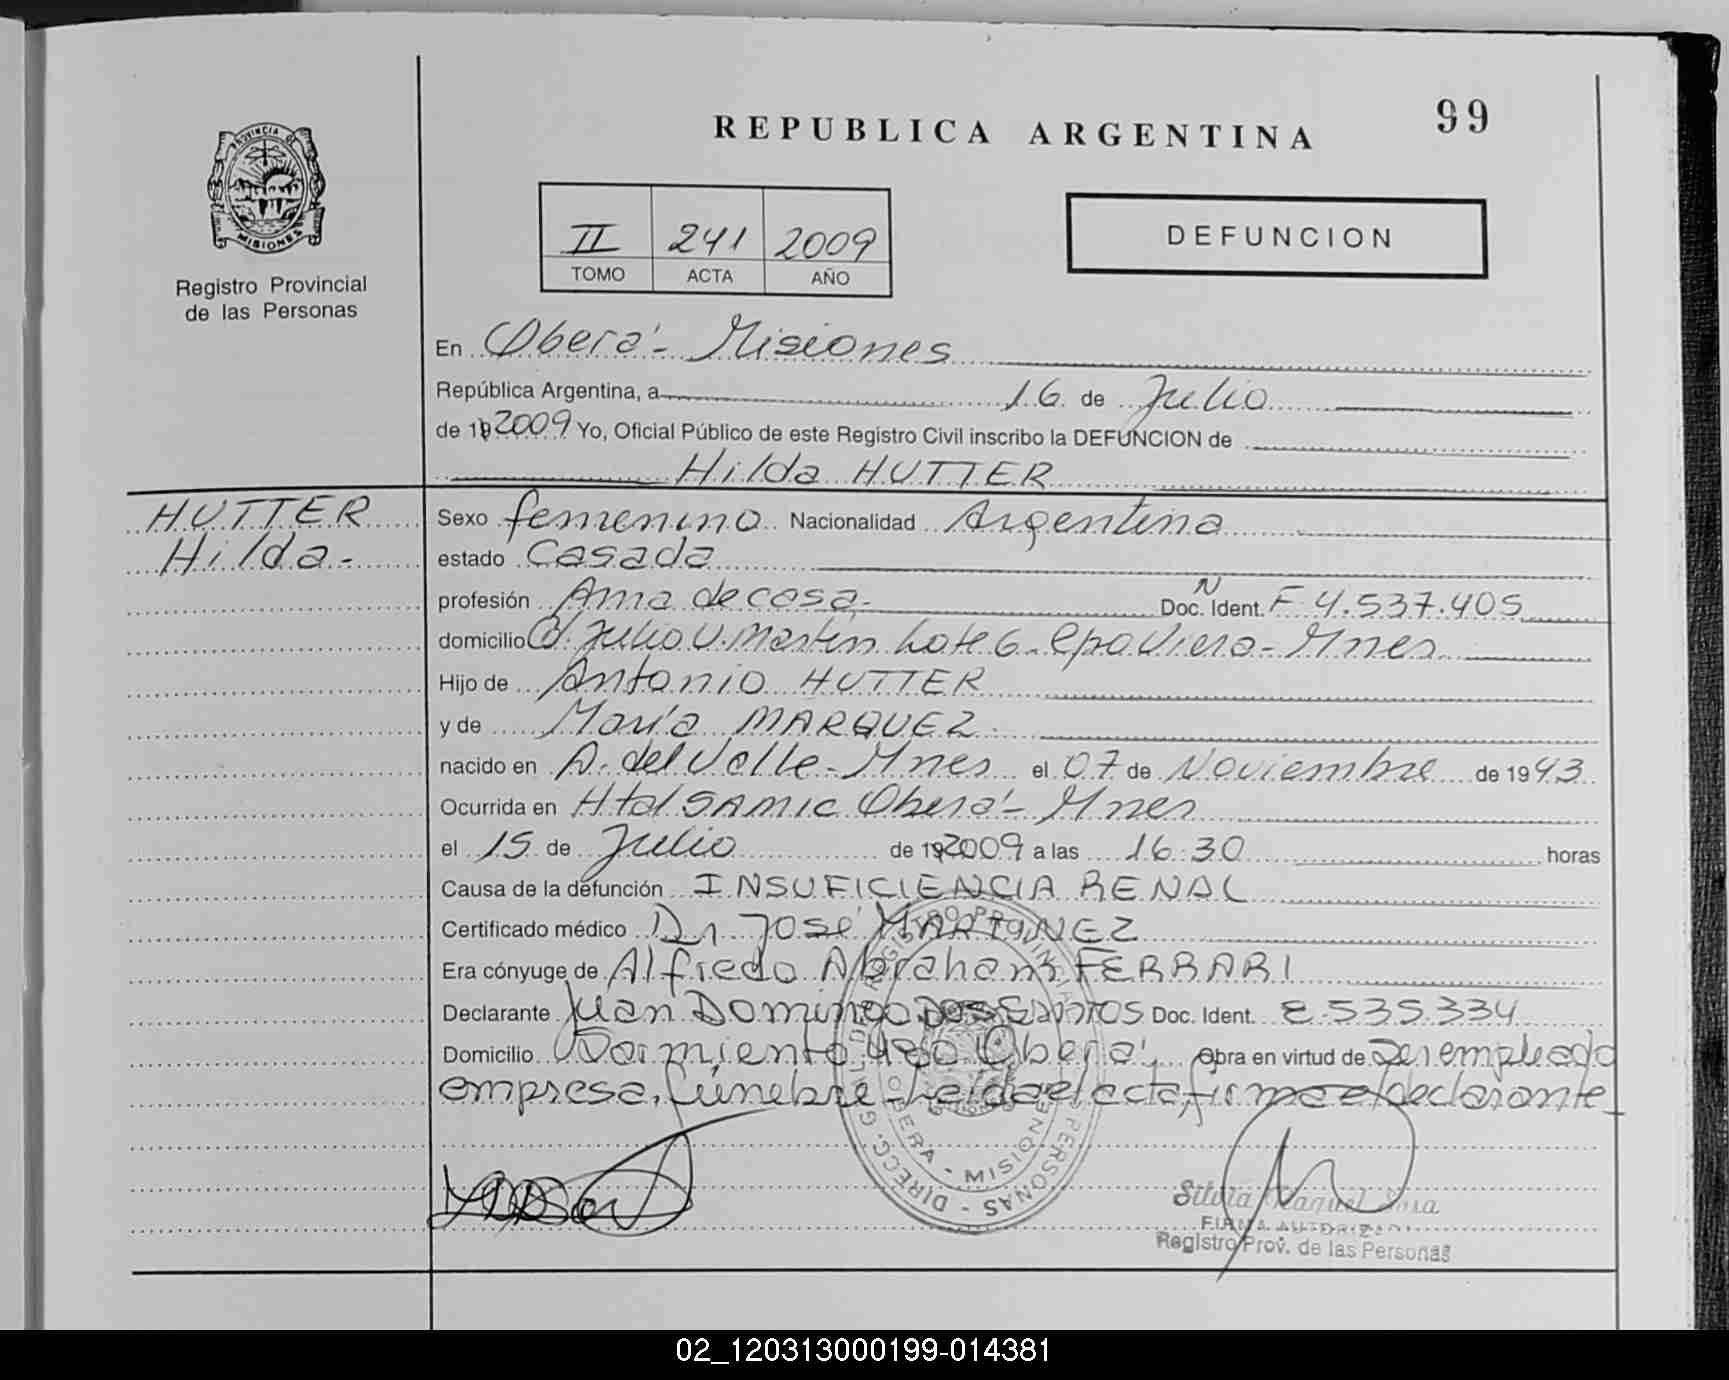 99
REPUBLICA ARGENTINA
PROVINCIA DE MISIONES
Registro Provincial
de las Personas
II 241 2009
TOMO ACTA AÑO
DEFUNCION
En Oberá - Misiones
República Argentina, a 16 de Julio
de 19 2009 Yo, Oficial Público de este Registro Civil inscribo la DEFUNCION de
Hilda HUTTER
HUTTER
Hilda.-
Sexo femenino Nacionalidad Argentina
estado Casada
profesión Ama de casa.- Doc. Ident. N F 4.537.405
domicilio Julio U. Martín Lote 6 - Cpo Viera - Mnes
Hijo de Antonio HUTTER
y de María MARQUEZ.
nacido en A. del Valle - Mnes el 07 de Noviembre de 1943
Ocurrida en Htal SAMIC Oberá - Mnes
el 15 de Julio de 19 2009 a las 16:30 horas
Causa de la defunción INSUFICIENCIA RENAL
Certificado médico Dr José MARTINEZ
Era cónyuge de Alfredo Abraham FERRARI
Declarante Juan Domingo DOS SANTOS Doc. Ident. 8.535.334
Domicilio Sarmiento 480 Oberá Obra en virtud de Ser empleado
empresa fúnebre - Leída el acta firma el declarante
DIRECC. GRAL. DEL REGISTRO PROVINCIAL DE LAS PERSONAS -
OBERA - MISIONES
Silvia Raquel Sosa
FIRMA AUTORIZADA
Registro Prov. de las Personas
02_120313000199-014381